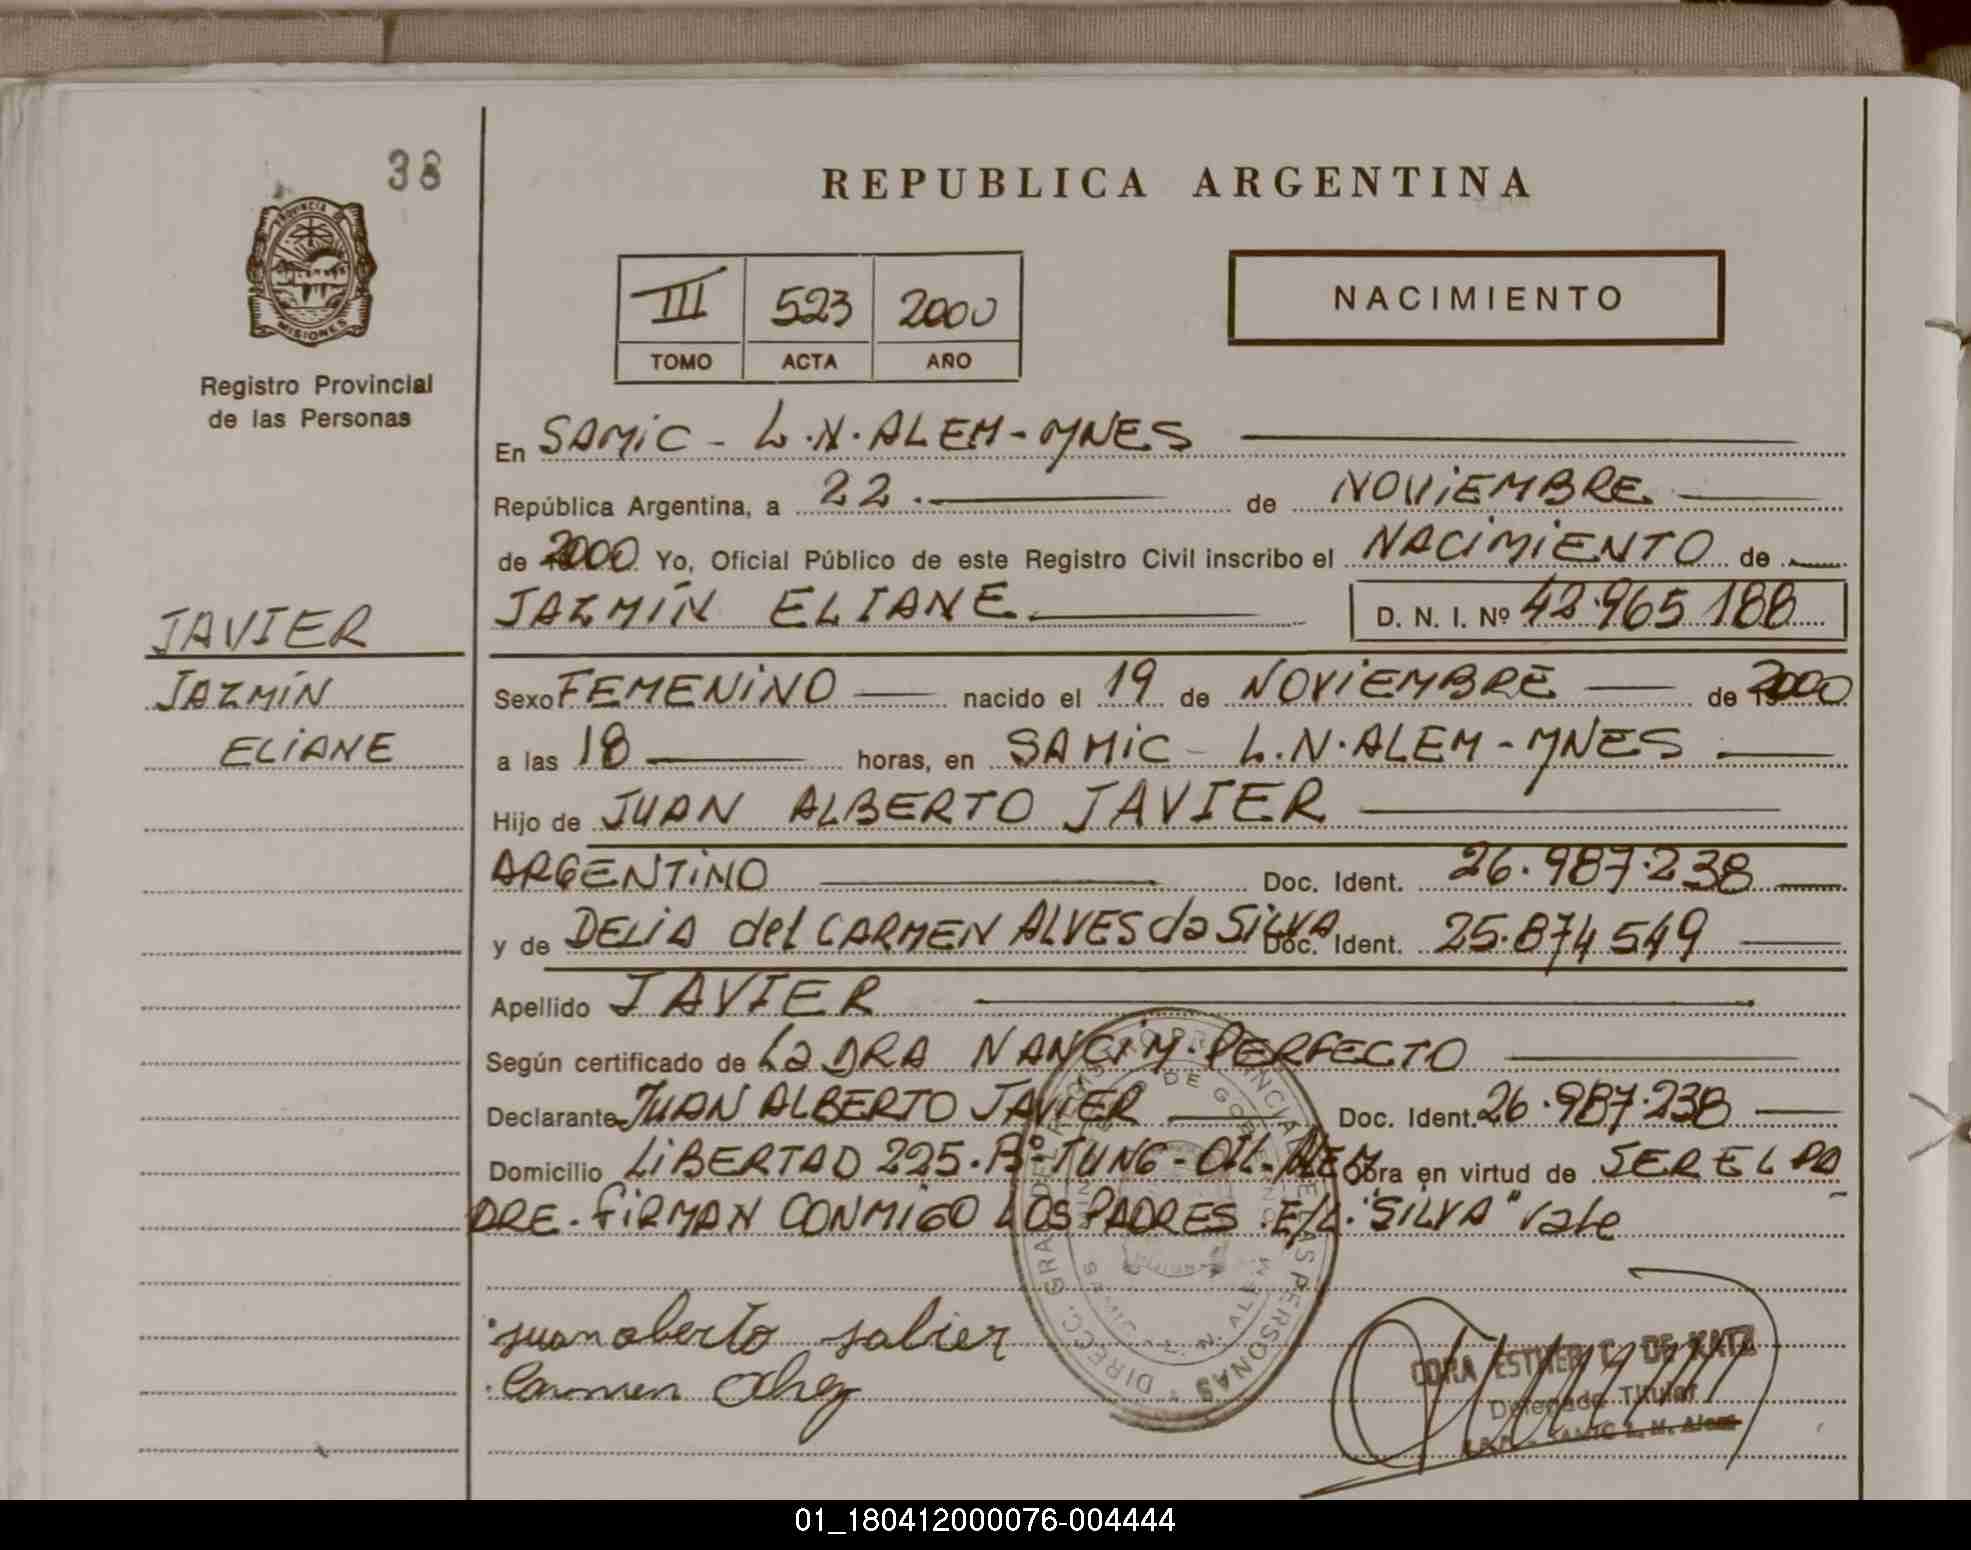 38
PROVINCIA DE
MISIONES
Registro Provincial
de las Personas
REPUBLICA ARGENTINA
III 523 2000
TOMO ACTA AÑO
NACIMIENTO
En SAMIC - L.N. ALEM - MNES
República Argentina, a 22. de NOVIEMBRE
de 2000 Yo, Oficial Público de este Registro Civil inscribo el NACIMIENTO de
JAZMÍN ELIANE D. N. I. Nº 42.965.188
JAVIER
JAZMÍN
ELIANE
Sexo FEMENINO nacido el 19 de NOVIEMBRE de 2000
a las 18 horas, en SAMIC - L.N. ALEM - MNES
Hijo de JUAN ALBERTO JAVIER
ARGENTINO Doc. Ident. 26.987.238
y de DELIA del CARMEN ALVES da SILVA Doc. Ident. 25.874.549
Apellido JAVIER
Según certificado de La DRA NANCI M. PERFECTO
Declarante JUAN ALBERTO JAVIER Doc. Ident. 26.987.238
Domicilio LIBERTAD 225. Bº TUNG - ALEM Obra en virtud de SER EL PA
DRE. FIRMAN CONMIGO LOS PADRES. E/L. "SILVA" vale
juan alberto Carmen
CORA ESTHER C. DE KATZ
Delegada Titular
01_180412000076-004444